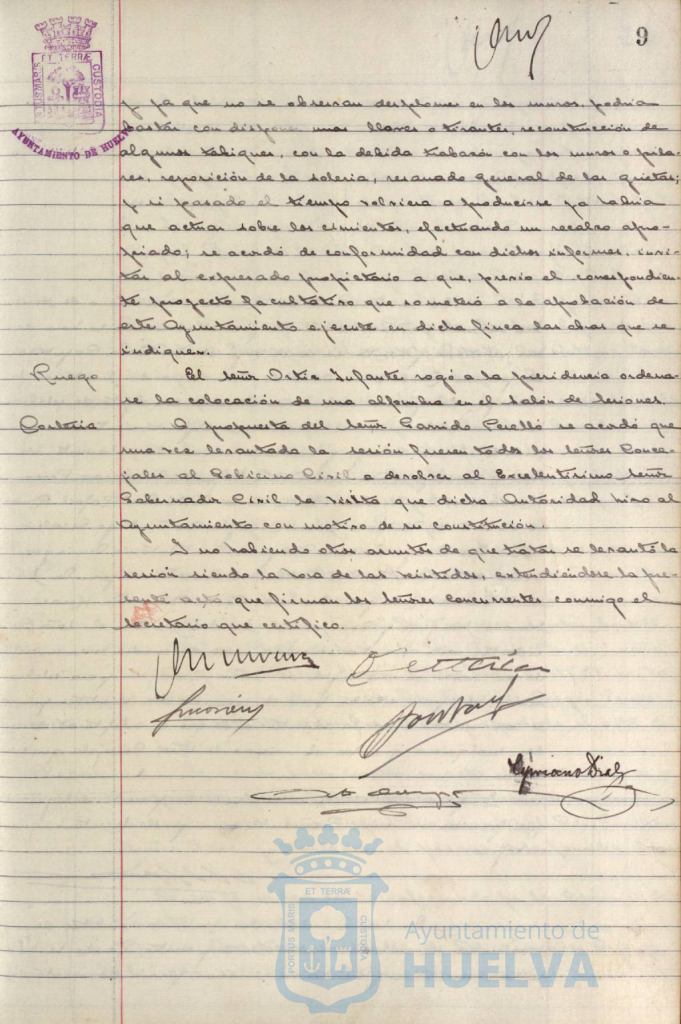 9
PORTUS MARIS
ET TERRÆ
CUSTODIA
AYUNTAMIENTO DE HUELVA
y ya que no se observan desplomes en los muros, podria
bastar con disponer unas llaves o tirantes, reconstrucción de
algunos tabiques, con la debida trabazón con los muros o pila-
res, reposición de la soleria, resanado general de las grietas;
y si pasado el tiempo volviera a producirse ya habia
que actuar sobre los cimientos, efectuando un recalzo apro-
piado; se acordó de conformidad con dichos informes, invi-
tar al expresado propietario a que, previo el correspondien-
te proyecto facultativo que someterá a la aprobación de
este Ayuntamiento ejecute en dicha finca las obras que se
indiquen.
Ruego
El señor Ortiz Infante rogó a la presidencia ordena-
se la colocación de una alfombra en el salón de sesiones.
Cortesia
A propuesta del señor Garrido Perelló se acordó que
una vez levantada la sesión fueran todos los señores Conce-
jales al Gobierno Civil a devolver al Excelentisimo señor
Gobernador Civil la visita que dicha Autoridad hizo al
Ayuntamiento con motivo de su constitución.
Y no habiendo otros asuntos de que tratar se levantó la
sesión siendo la hora de las veintidos, extendiéndose la pre-
sente acta que firman los señores concurrentes conmigo el
secretario que certifico.
Cipriano Diaz
ET TERRÆ
PORTUS MARIS
CUSTODIA
Ayuntamiento de
HUELVA